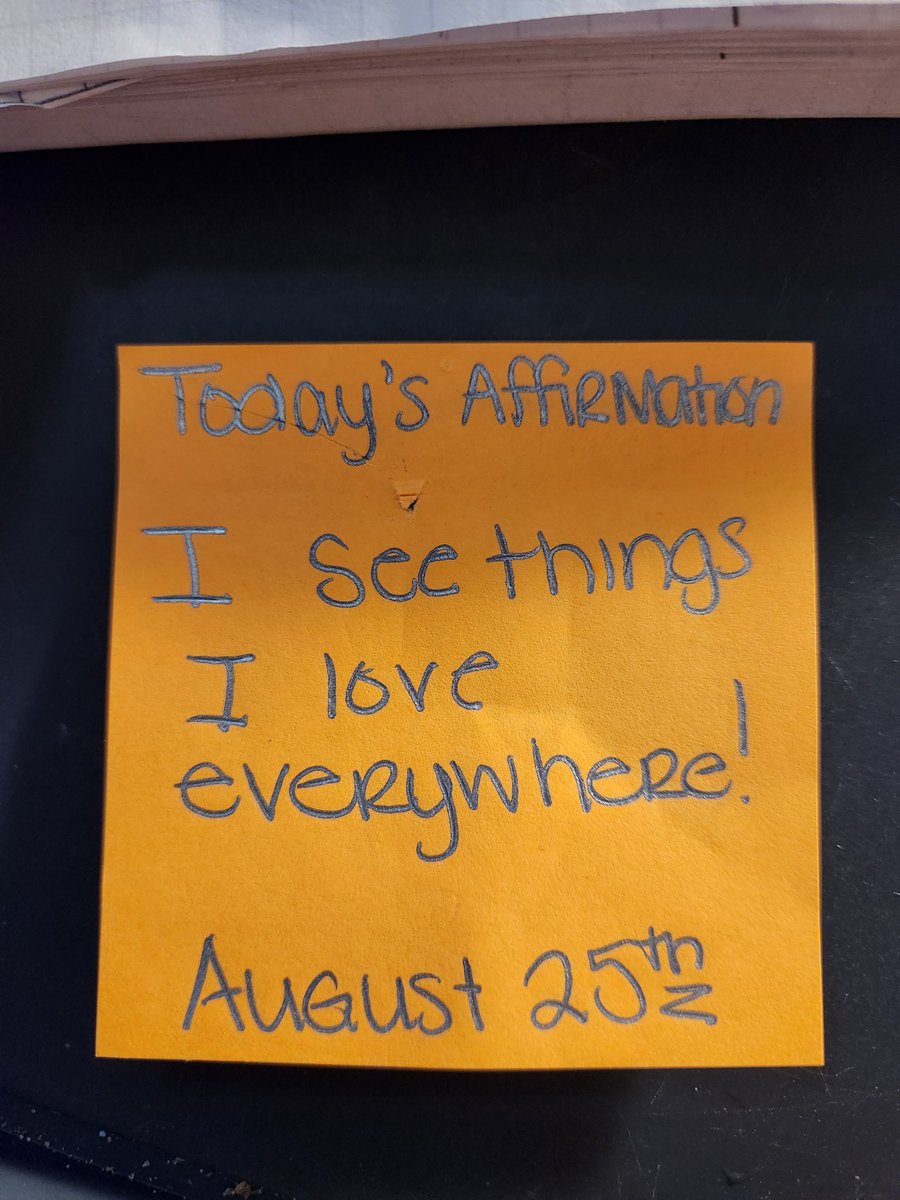 Today's Affirmation
I see things
I love
everywhere!
August 25th